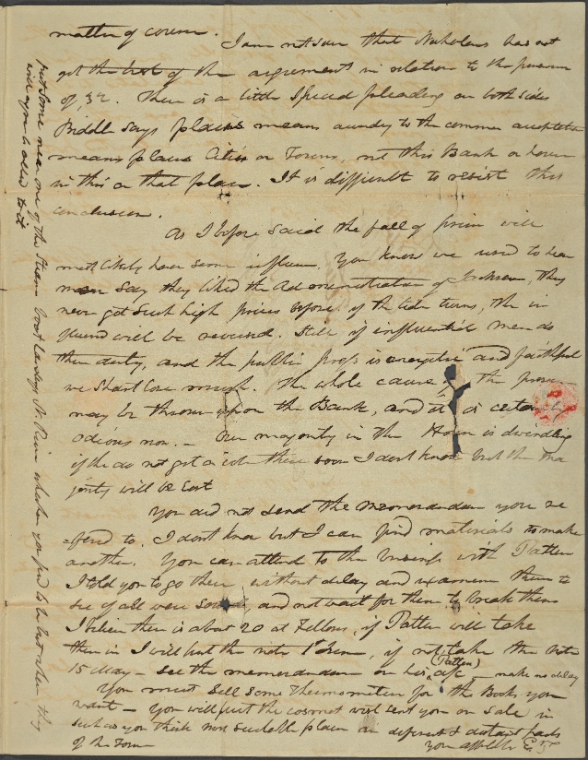 matter of course.
I am not sure that Nicholas has not
got the best of the argument in relation to the
of, 32. There is a little special pleading on both sides
Biddle says places means according to the common
means places Cities or Towns, not this Bank or house
in this or that place. It is difficult to resist this
conclusion.
As I before said the fall of prices will
most likely have some influence. You know we used to hear
men say they liked the Administration of Jackson, they
never got such high prices before, if the tide turns, the in
fluence will be reversed. Still if influential men do
their duty, and the public press is energetic and faithful
we shall lose nought. The whole cause of the
may be thrown upon the Bank, and it is certainly
odious now. – Our majority in the House is dwindling
if the do not get a vote there soon I dont know but the ma
jority will be lost
You did not send the memorandum you re
ferred to. I dont know but I can find materials to make
another. You can attend to the business with Patten
I told you to go there without delay and examine them to
see if all were sound, and not wait for them to break them
I believe there is about 20 at Fellows, if Patten will take
them in I will put the note if not take the note
15 May – see the memorandum on his a/c (Patten) – make no delay
You must sell some Thermometers for the Books you
want – You will put the sent you on sale in
such as you think most suitable places in different & distant parts
of the Town
You affftly
near one of the Steam Boat Landings N. River whether you find to be best when they
will you to be added to it